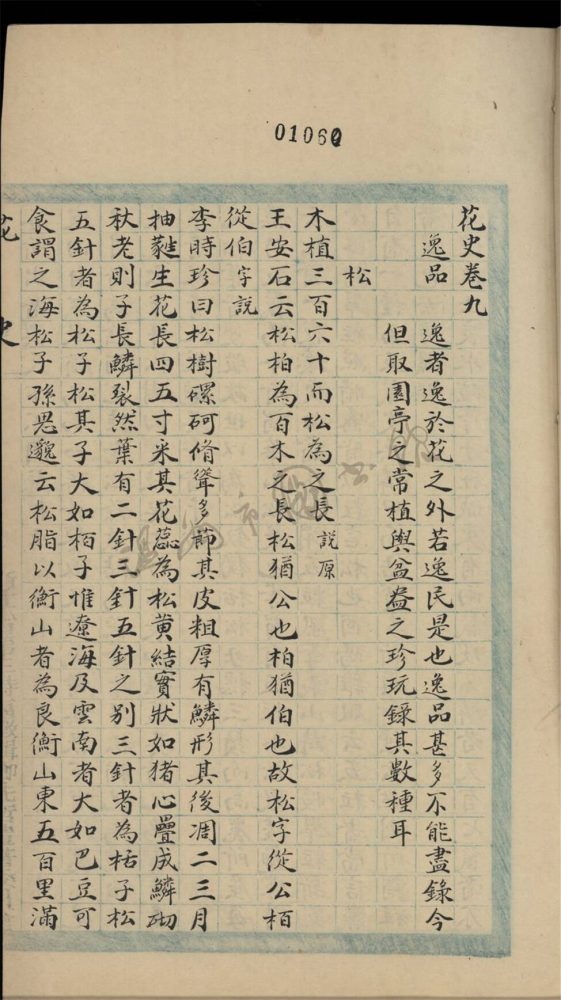 01060
花史卷九
逸品
逸者逸於花之外若逸民是也逸品甚多不能盡錄今
但取園亭之常植與盆盎之珍玩錄其數種耳
松
木植三百六十而松為之長說原
王安石云松柏為百木之長松猶公也柏猶伯也故松字從公栢
從伯字說
李時珍曰松樹磥砢脩聳多節其皮粗厚有鱗形其後凋二三月
抽蕤生花長四五寸米其花蕊為松黃結實狀如猪心疊成鱗砌
秋老則子長鱗裂然葉有二針三針五針之別三針者為栝子松
五針者為松子松其子大如栢子惟遼海及雲南者大如巴豆可
食謂之海松子孫思邈云松脂以衡山者為良衡山東五百里滿
花史